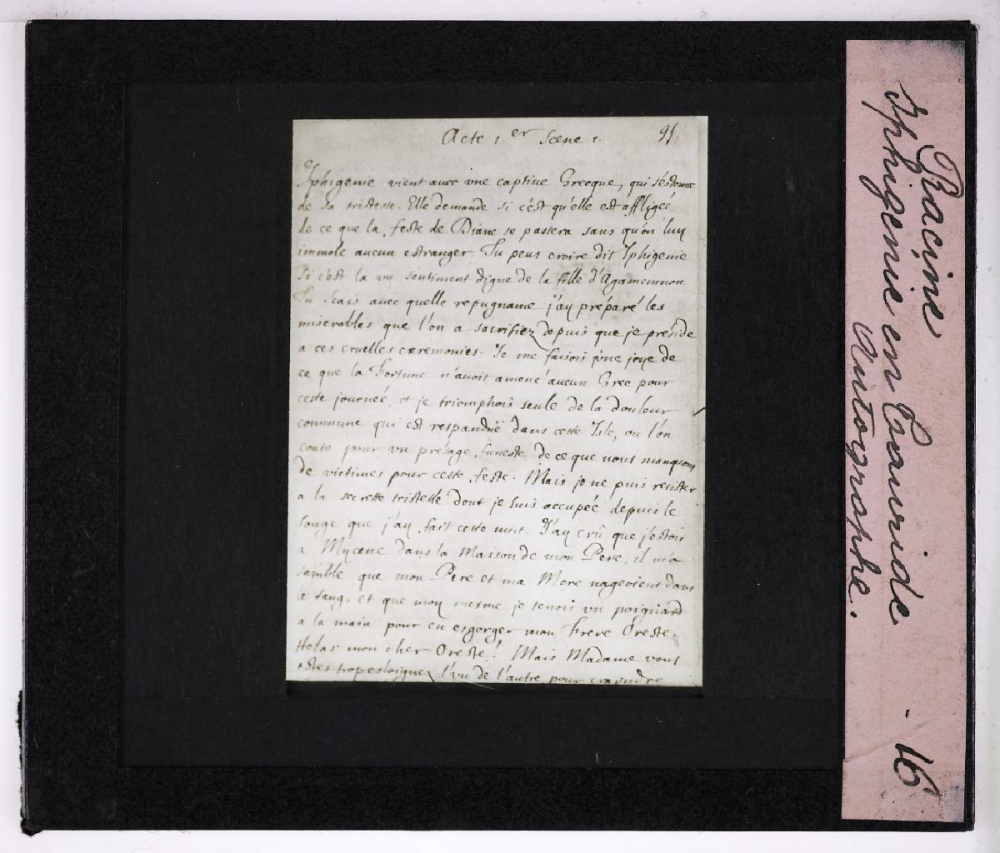 Acte 1.er Scene 1. 95
Iphigenie vient avec vne captive Grecque, qui s'estonne
de sa tristesse. Elle demande si c'est qu'elle est affligée
de ce que la feste de Diane se passera sans qu'on luy
immole aucun estranger. Tu peus croire dit Iphigenie
si c'est la vn sentiment digne de la fille d'Agamemnon
Tu scais avec quelle repugnance j'ay preparé les
miserables que l'on a sacrifiez depuis que je preside
a ces cruelles ceremonies. Je me faisois vne joye de
ce que la Fortune n'avoit amené aucun Grec pour
cette journée, et je triomphois seule de la douleur
commune qui est respandüe dans cette Isle, ou l'on
conte pour vn presage funeste de ce que nous manquons
de victimes pour cette feste. Mais je ne puis resister
a la secrette tristesse dont je suis occupée depuis le
songe que j'ay fait cette nuit. J'ay crû que j'estois
a Mycene dans la Maison de mon Pere, il m'a
semblé que mon Pere et ma Mere nageoient dans
le sang, et que moy mesme je tenois vn poignard
a la main pour en esgorger mon Frere Oreste.
Helas mon cher Oreste! Mais Madame vous
estes trop esloignez l'vn de l'autre pour craindre
Racine
Iphigenie en Tauride
Autographe.
- 16